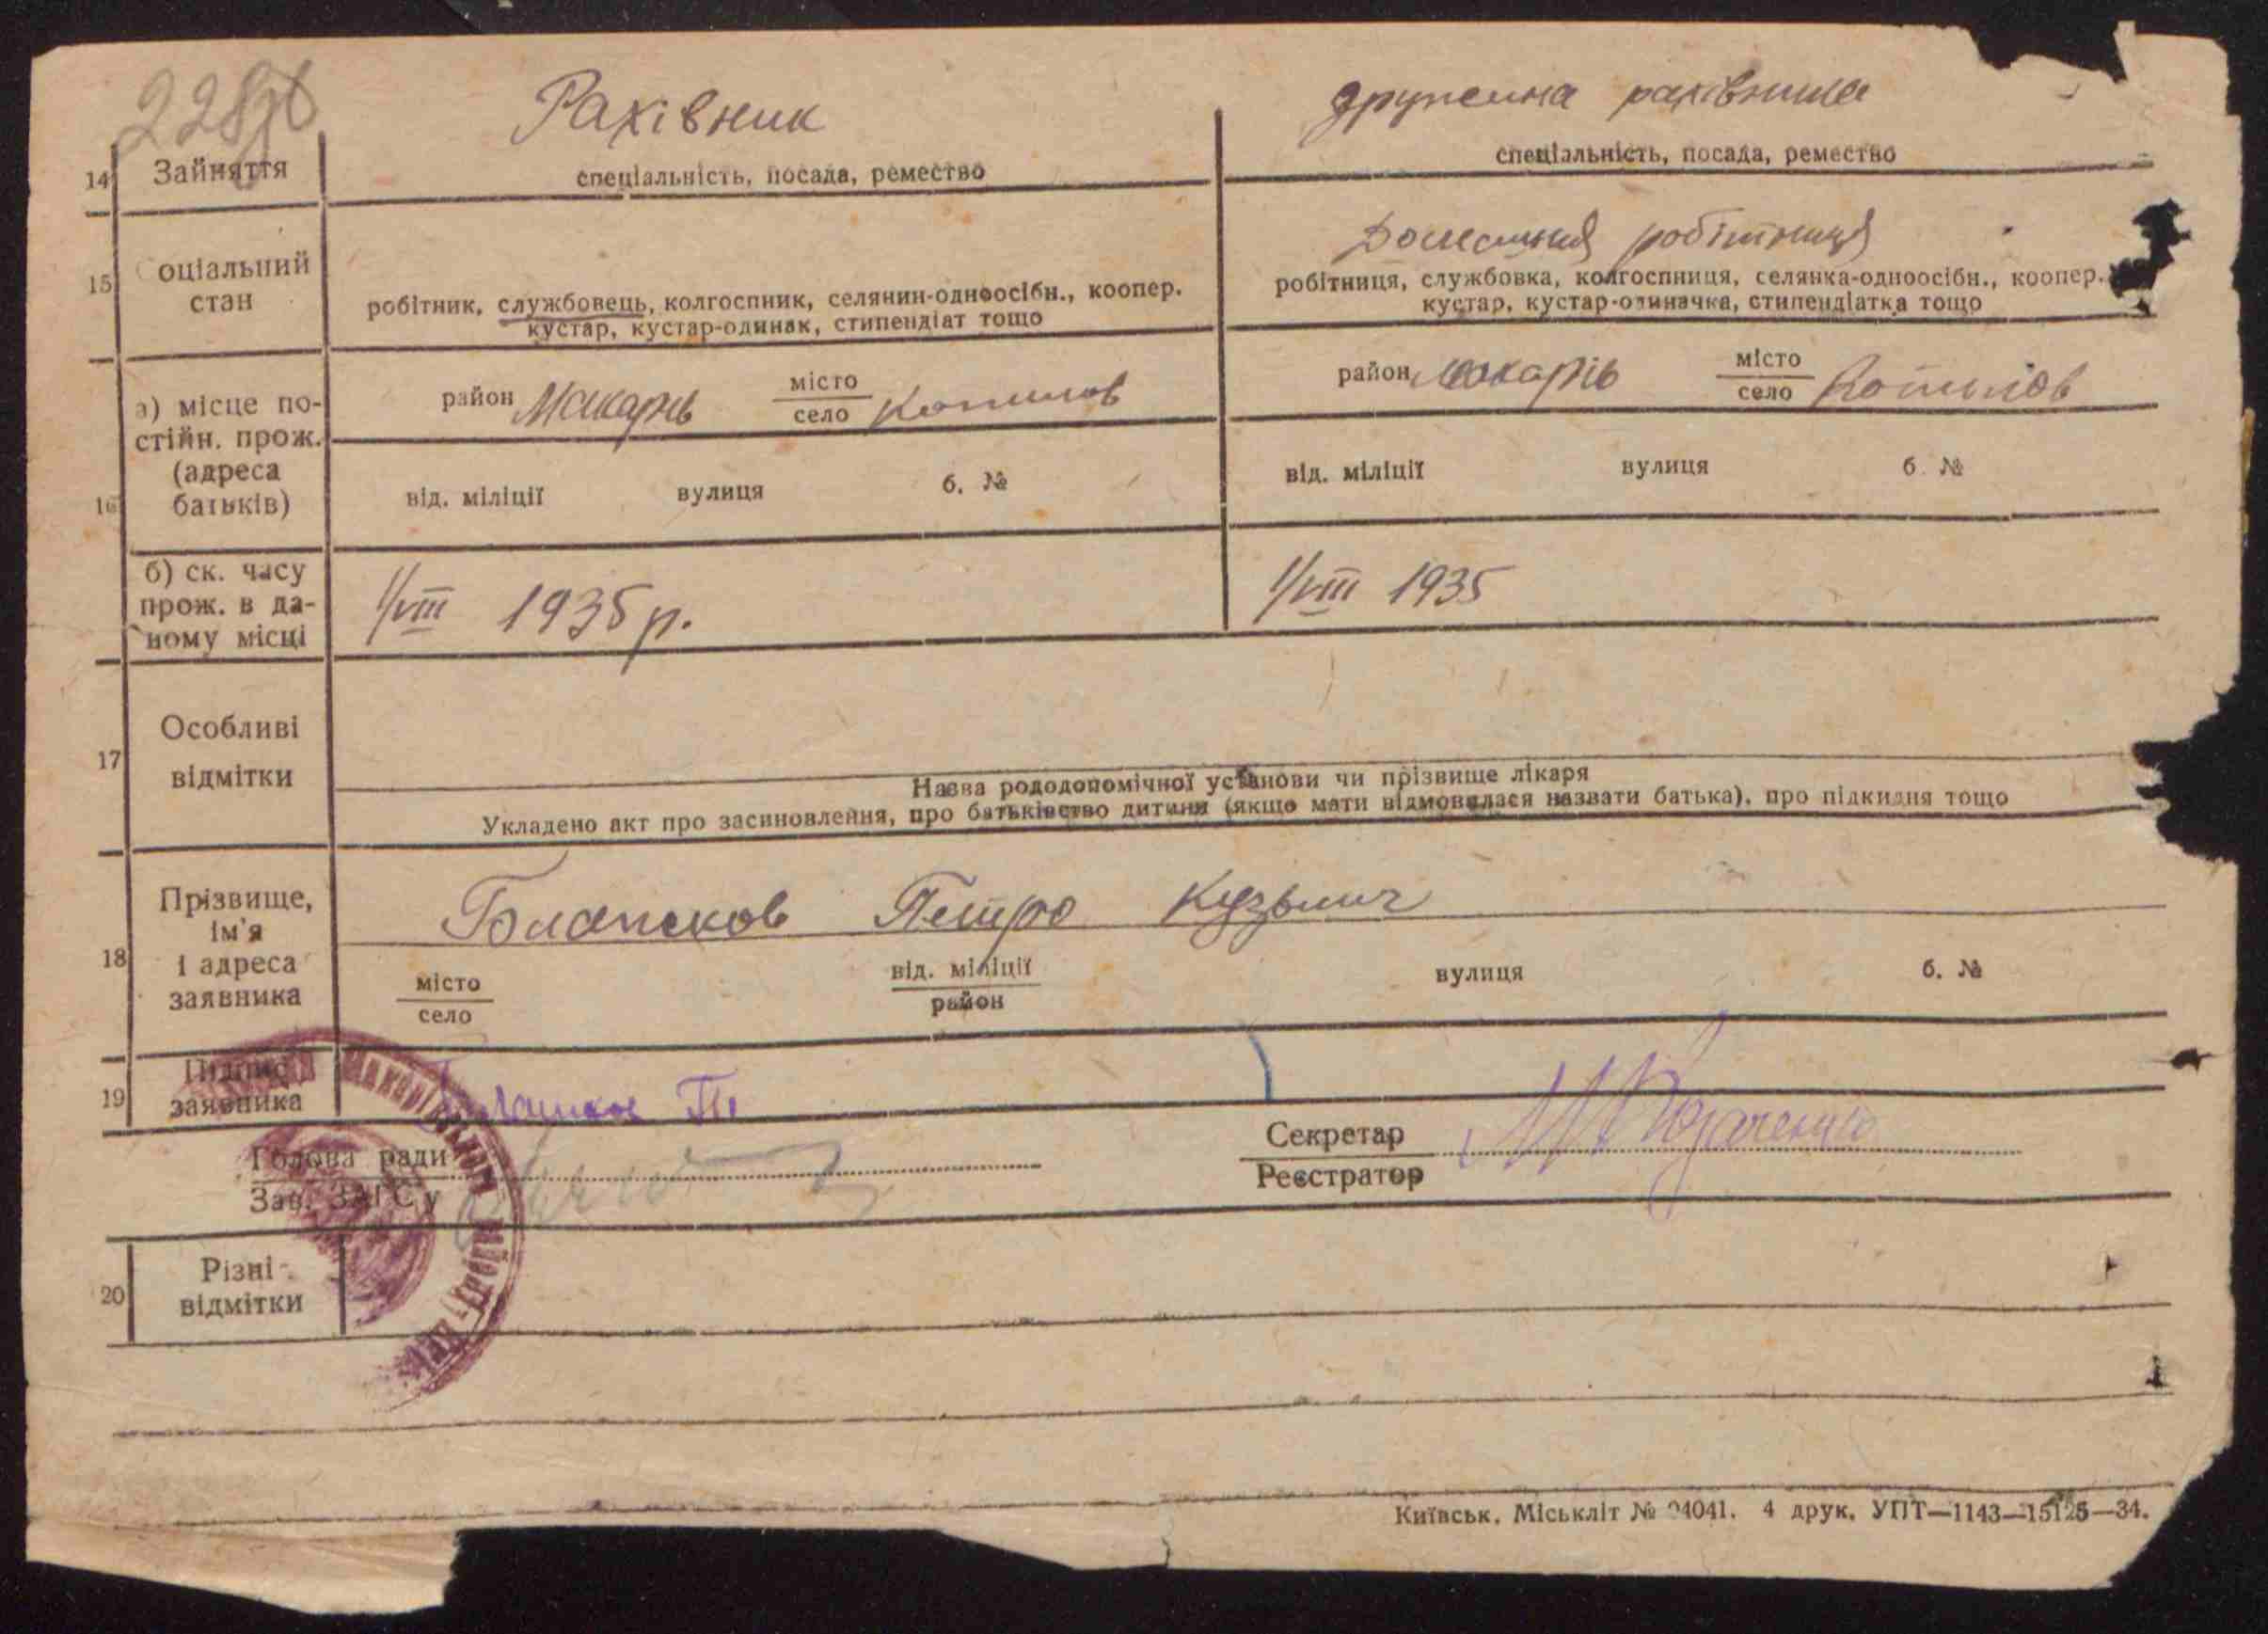 228
Рахівник
дружина рахівника
14 Зайняття
спеціальність, посада, ремество
спеціальність, посада, ремество
Домашня робітниця
15 Соціальний стан
робітник, службовець, колгоспник, селянин-одноосібн., коопер.
кустар, кустар-одинак, стипендіат тощо
робітниця, службовка, колгоспниця, селянка-одноосібн., коопер.
кустар, кустар-одиначка, стипендіатка тощо
16
а) місце по-
стійн. прож.
(адреса
батьків)
район Макарів місто
село Копилов
район Макарів місто
село Копилов
від. міліції вулиця б. №
від. міліції вулиця б. №
б) ск. часу
прож. в да-
ному місці
1/VIII 1935 р.
1/VIII 1935
17
Особливі
відмітки
Назва рододопомічної установи чи прізвище лікаря
Укладено акт про засиновлення, про батьківство дитини (якщо мати відмовилася назвати батька), про підкидня тощо
18
Прізвище,
ім'я
і адреса
заявника
Петро Кузьмич
місто
село
від. міліції
район
вулиця б. №
19
Підпис
заявника
Голова ради
Зав. ЗАГСу
Секретар
Реєстратор
20
Різні
відмітки
Київськ. Міськліт № 94041. 4 друк. УПТ—1143—15125—34.